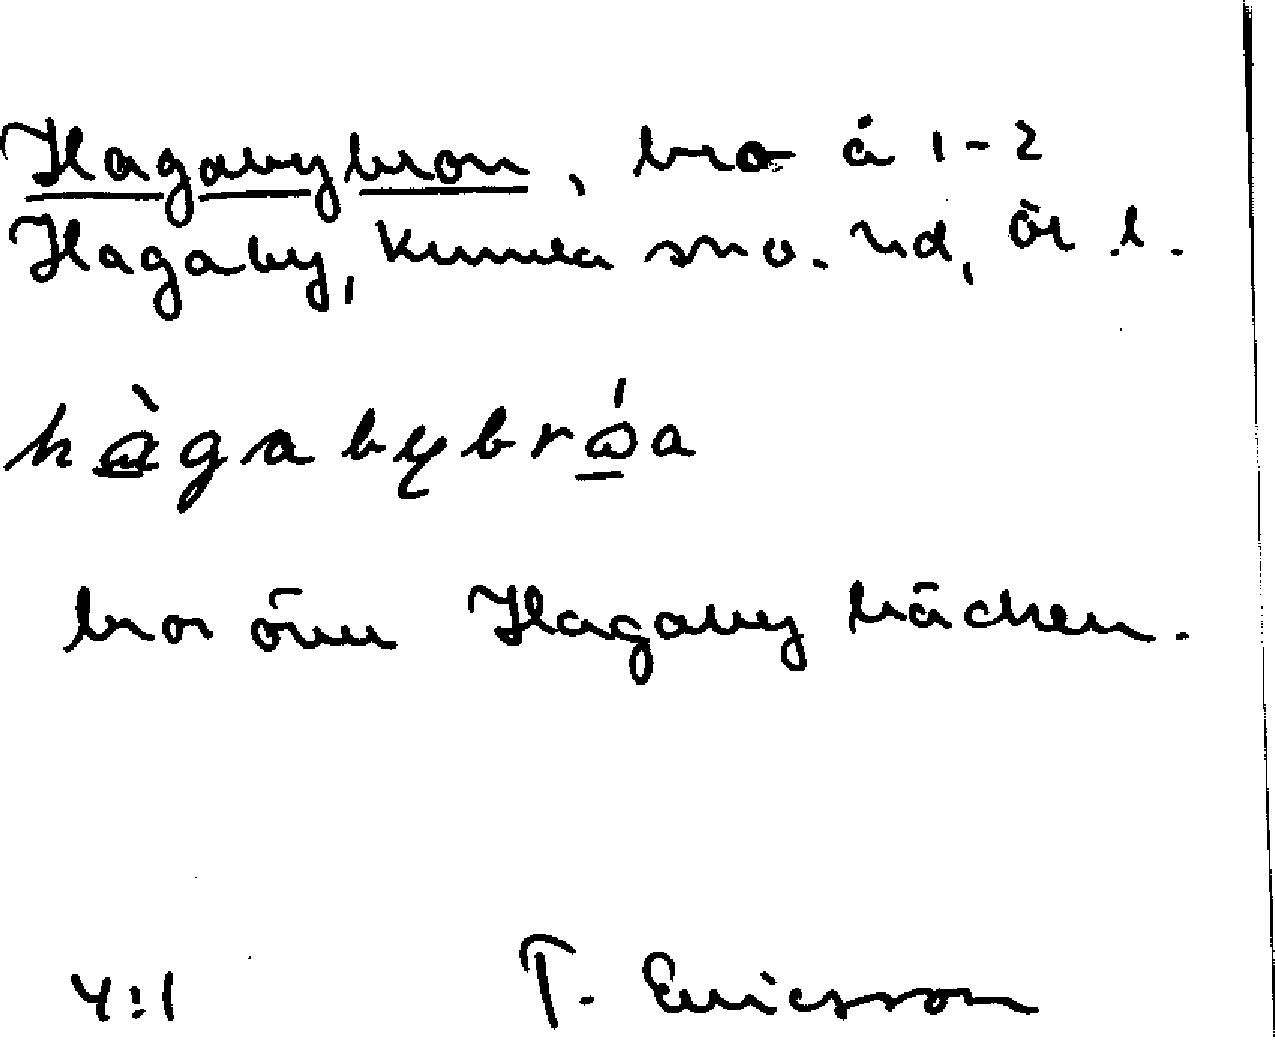 Hagabybron, bro å 1-2
Hagaby, Kumla sn o. hd, Ör. l.
hàgabybróa
bron över Hagabybäcken.
4:1 T. Ericsson